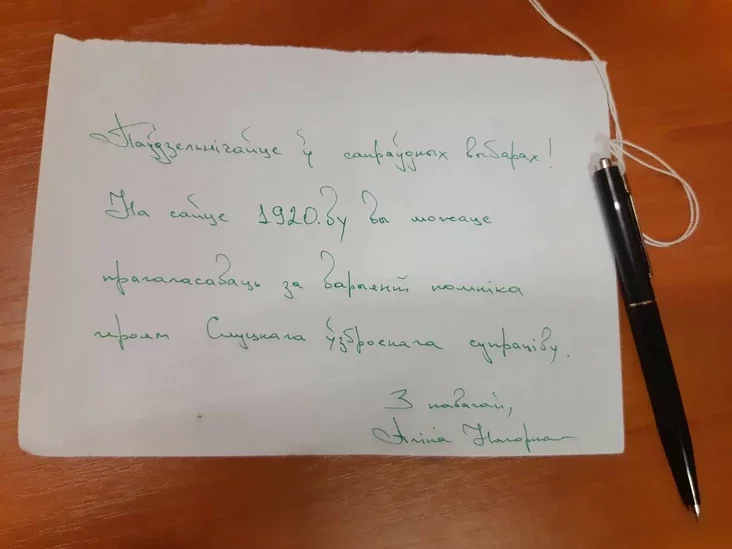 Паўдзельнічайце ў сапраўдных выбарах!
На сайце 1920.by вы можаце
прагаласаваць за варыянт помніка
героям Слуцкага ўзброенага супраціву.
З павагай,
Аліна Нагорная